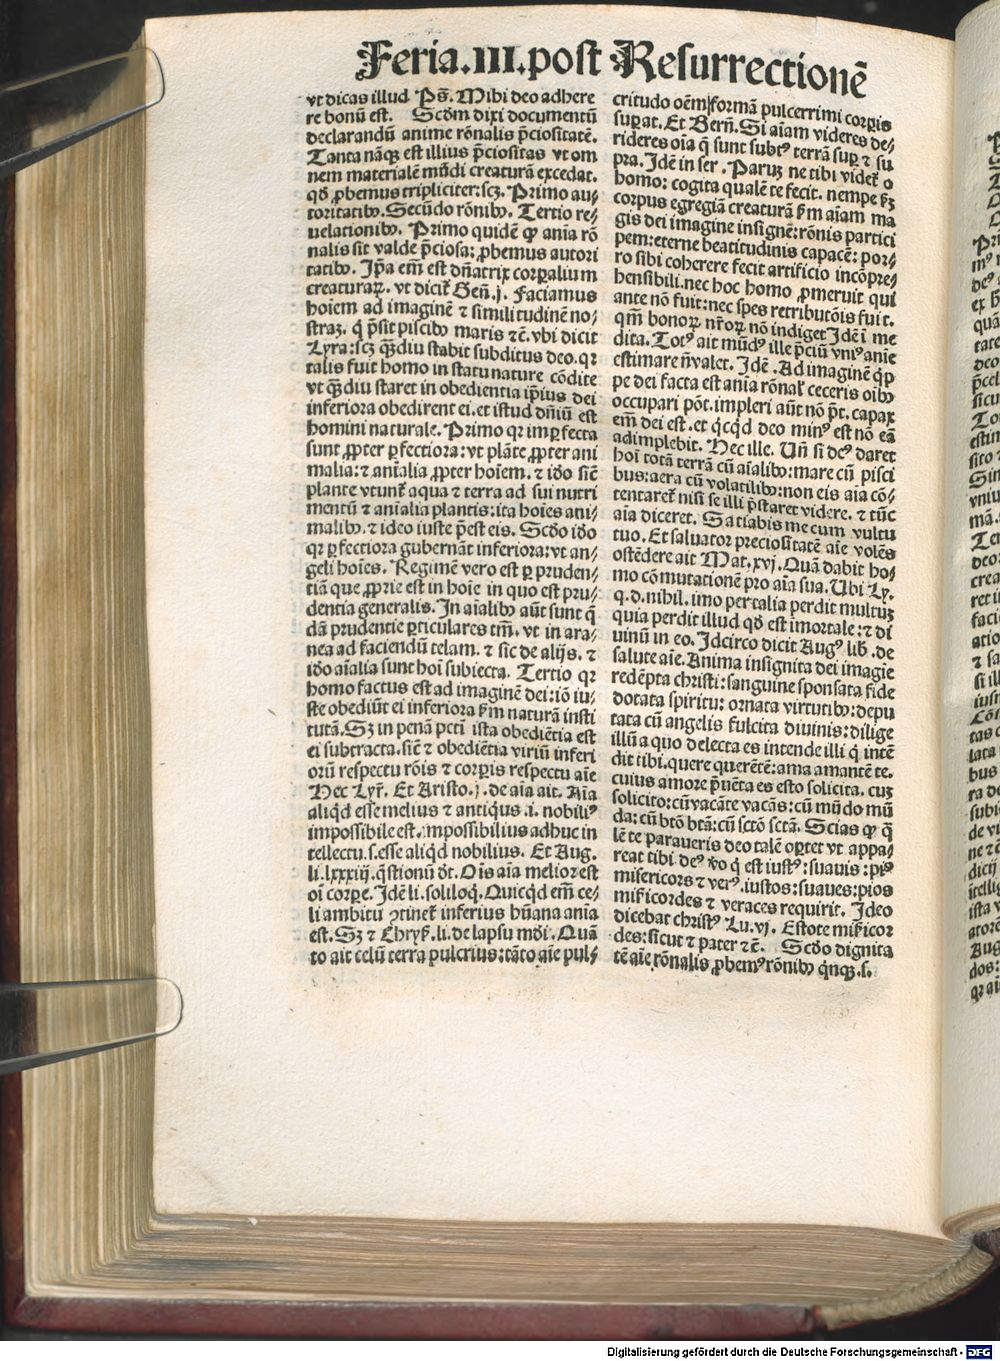 Feria.III.post Resurrectionē
vt dicas illud Ps̄. Mihi deo adhere
re bonū est. Scd̄m dixi documentū
declarandū anime rōnalis p̄ciositatē.
Tanta nāq; est illius p̄ciositas vt om
nem materialē mūdi creaturā excedat.
qḋ ꝓbemus tripliciter:scꝫ. Primo au⸗
toritatibꝰ. Secūdo rōnibꝰ. Tertio re⸗
uelationibꝰ. Primo quidē ꝙ anīa rō
nalis sit valde p̄ciosa: ꝓbemus autori
tatibꝰ. Ip̄a em̄ est dn̄atrix corꝑalium
creaturaꝝ. vt dicit̄ Gen̄.j. Faciamus
hoiem ad imaginē ⁊ similitudinē no⸗
straꝫ. q̇ p̄sit piscibꝰ maris ⁊c̄. vbi dicit
Lyra: scꝫ qᷓ̄diu stabit subditus deo. qꝛ
talis fuit homo in statu nature cōdite
vt qᷓ̄diu staret in obedientia ip̄ius dei
inferiora obedirent ei. et istud dn̄iū est
homini naturale. Primo qꝛ imꝑfecta
sunt ꝓpter ꝑfectiora: vt plāte ꝓpter ani
malia: ⁊ anīalia ꝓpter hoīem. ⁊ iḋo sic̄
plante vtunt̄ aqua ⁊ terra ad sui nutri
mentū ⁊ anīalia plantis: ita hoies ani⸗
malibꝰ. ⁊ ideo iuste p̄est eis. Scḋo iḋo
qꝛ ꝑfectiora gubernāt inferiora: vt an⸗
geli hoīes. Regimē vero est ꝑ pruden⸗
tiā que ꝓprie est in hoīe in quo est pru⸗
dentia generalis. In aīalibꝰ aūt sunt q̄
dā prudentie ꝑticulares tm̄. vt in ara⸗
nea ad faciendū telam. ⁊ sic de alijs. ⁊
iḋo aīalia sunt hoī subiecta. Tertio qꝛ
homo factus est ad imaginē dei: iō iu⸗
ste obediūt ei inferiora ẜm naturā insti
tutā. Sꝫ in penā pcti ista obediētia est
ei subtracta. sic̄ ⁊ obediētia viriū inferi
orū respectu rōis ⁊ corꝑis respectu aīe
Hec Lyr̄. Et Aristo. j. de aīa ait. Aīa
aliqd esse melius ⁊ antiqꝰus .i. nobiliꝰ
impossibile est. impossibilius adhuc in
tellectu. s. esse aliqd nobilius. Et Aug.
li. lxxxiij. q̄stionū d̄t. Oīs aīa melior est
oī corꝑe. Idē li. soliloq̇. Quicqd em̄ ce⸗
li ambitu ꝯtinet̄ inferius hūana anīa
est. Sꝫ ⁊ Chrys̄. li. de lapsu mōi. Quā
to ait celū terra pulcrius: tāto aīe pul⸗
critudo oēm formā pulcerrimi corꝑis
suꝑat. Et Bern̄. Si aīam videres de⸗
rideres oīa q̄ sunt subtꝰ terrā suꝑ ⁊ su
pra. Idē in ser. Paruꝫ ne tibi videt̄ o
homo: cogita qualē te fecit. nempe ẜꝫ
corpus egregiā creaturā ẜm aīam ma
gis dei imagine insignē: rōnis partici
pem: eterne beatitudinis capacē: por⸗
ro sibi coherere fecit artificio incōpre⸗
hensibili. nec hoc homo ꝓmeruit qui
ante nō fuit: nec spes retributōis fuit.
qm̄ bonoꝝ nr̄oꝝ nō indiget Idē ī me
dita. Totꝰ ait mūdꝰ ille p̄ciū vniꝰ anīe
estimare n̄ valet. Idē. Ad imaginē q̇p
pe dei facta est anīa rōnal̄ ceceris oibꝰ
occupari pōt. impleri aūt nō pt̄. capax
em̄ dei est. et q̇cqd deo minꝰ est nō eā
adimplebit. Hec ille. Un̄ si deꝰ daret
hoī totā terrā cū aīalibꝰ: mare cū pisci
bus: aera cū volatilibꝰ: non eis aīa cō⸗
tentaret̄ nisi se illi p̄staret videre. ⁊ tūc
aīa diceret. Satiabis me cum vultu
tuo. Et saluator preciositatē aīe volēs
ostēdere ait Mat. xvj. Quā dabit ho⸗
mo cōmutationē pro aīa sua. Ubi Ly.
q.d. nihil. imo per talia perdit multuꝫ
quia perdit illud qḋ est imortale: ⁊ di
uinū in eo. Idcirco dicit Augꝰ lib. de
salute aīe. Anima insignita dei imagīe
redēpta christi: sanguine sponsata fide
dotata spiritu: ornata virtutibꝰ: depu
tata cū angelis fulcita diuinis: dilige
illū a quo delecta es intende illi q̇ intē
dit tibi. quere querētē: ama amantē te.
cuius amore p̄uēta es esto solicita. cuꝫ
solicito: cū vacāte vacās: cū mūdo mū
da: cū btō btā: cū sctō sctā. Scias ꝙ q̄
lē te paraueris deo talē oꝑtet vt appa⸗
reat tibi deꝰ ꝟo q̇ est iustꝰ: suauis: piꝰ
misericors ⁊ verꝰ. iustos: suaues: pios
mīcordes ⁊ veraces requirit. Ideo
dicebat christꝰ Lu. vj. Estote mīcor
des: sicut ⁊ pater ⁊c̄. Scḋo dignita
tē aīe rōnalis ꝓbemꝰ rōnibꝰ q̇nqꝫ. s.
Digitalisierung gefördert durch die Deutsche Forschungsgemeinschaft - DFG